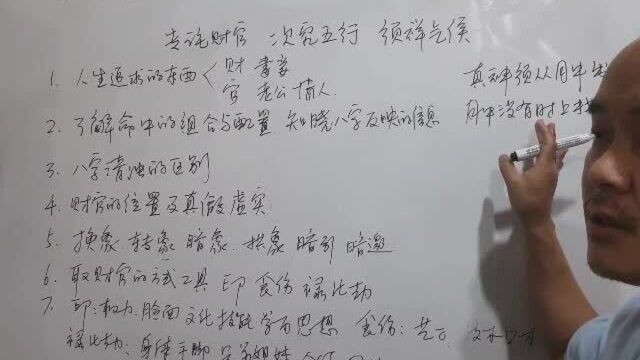 先论财官 次究五行 须详气候
1. 人生追求的东西
财 妻妾
官 老公 情人
真神须从月中
月中没有时上
2. 了解命中的组合与配置 知晓八字反映的信息
3. 八字清浊的区别
4. 财官的位置及真假虚实
5. 换象 转象 暗象 拱象 暗引 暗邀
6. 取财官的方式工具 印 食伤 禄比劫
7. 印: 权力 脸面 文化 技能 学历 思想 食伤: 口才
禄比劫: 身体 手脚 兄弟姐妹